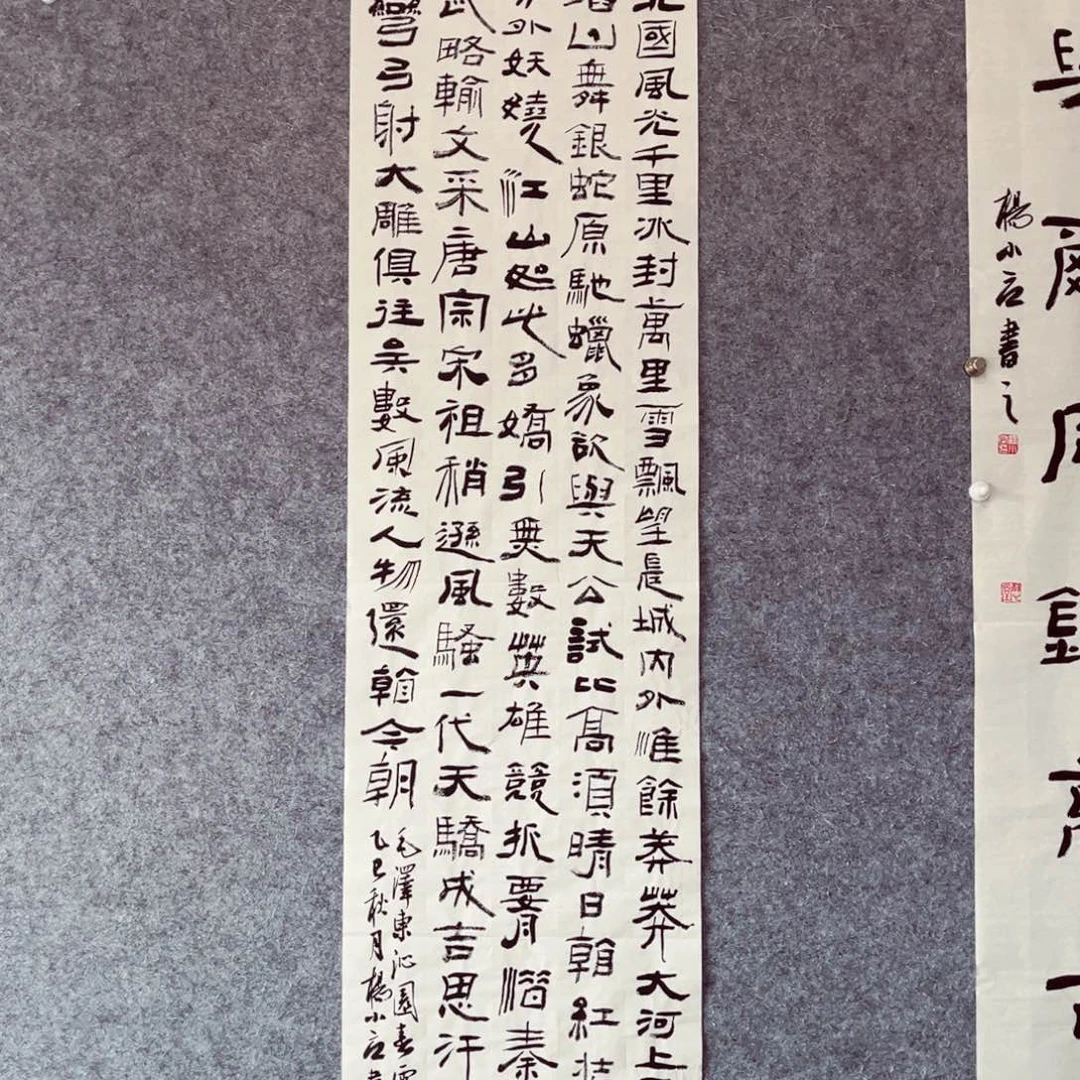 與爾同銷萬古
北國風光千里冰封萬里雪飄望長城內外惟餘莽莽大河上
滔山舞銀蛇原馳蠟象欲與天公試比高須晴日看紅裝
外妖嬈江山如此多嬌引無數英雄競折腰惜秦
武略輸文采唐宗宋祖稍遜風騷一代天驕成吉思汗
彎弓射大雕俱往矣數風流人物還看今朝
毛澤東沁園春雪
乙巳秋月楊小